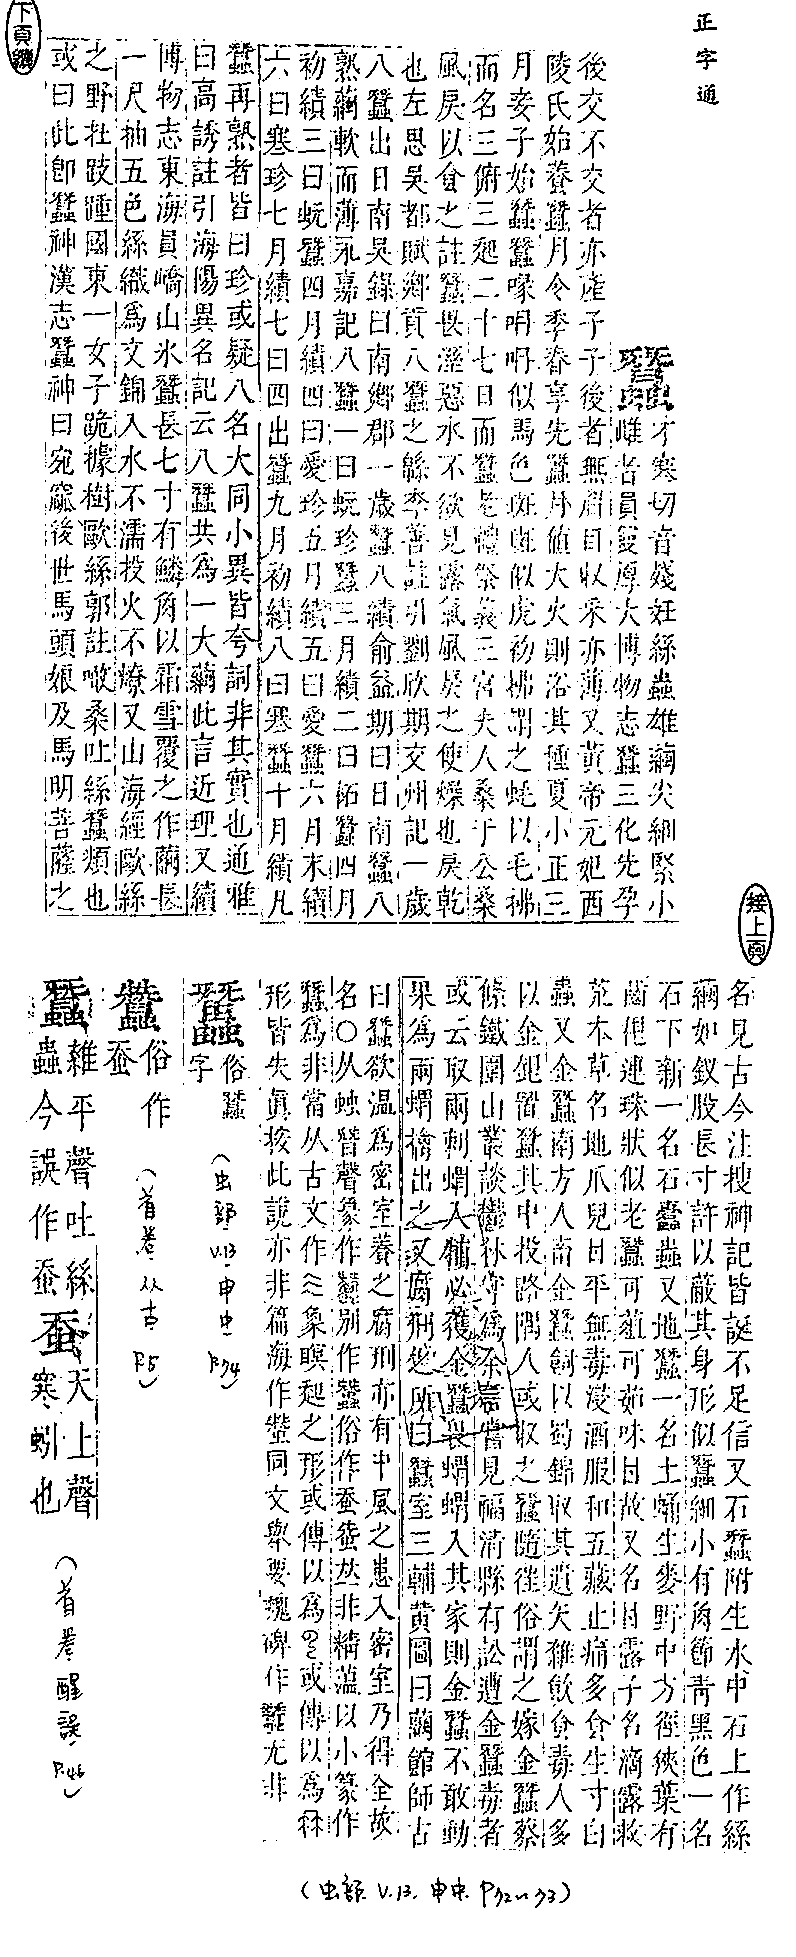 正字通
蠶 才寒切音殘妊絲蟲雄繭尖細緊小
雌者員蔓厚大博物志蠶三化先孕
後交不交者亦產子子後者無眉目收來亦薄又黃帝元妃西
陵氏始養蠶月令季春享先蠶月值大火則浴其種夏小正三
月妾子始蠶蠶喙呥呥似馬色斑斑似虎初拂謂之蚝以毛拂
而名三俯三起二十七日而蠶老禮祭義三宮夫人桑于公桑
風戾以食之註蠶畏溼惡水不欲見露氣風戾之使燥也戾乾
也左思吳都賦鄉貢八蠶之緜李善註引劉欣期交州記一歲
八蠶出日南吳錄曰南鄉郡一歲蠶八績俞益期曰日南蠶八
熟繭軟而薄永嘉記八蠶一曰蚖珍蠶三月績二曰柘蠶四月
初績三曰蚖蠶四月績四曰愛珍五月績五曰愛蠶六月末績
六曰寒珍七月績七曰四出蠶九月初績八曰寒蠶十月績凡
蠶再熟者皆曰珍或疑八名大同小異皆夸詞非其實也通雅
曰高誘註引海陽異名記云八蠶共為一大繭此言近理又續
博物志東海員嶠山氷蠶長七寸有鱗角以霜雪覆之作繭長
一尺抽五色絲織為文錦入水不濡投火不燎又山海經歐絲
之野在跂踵國東一女子跪據樹歐絲郭註噉桑吐絲蠶類也
或曰此即蠶神漢志蠶神曰宛窳後世馬頭娘及馬明菩薩之
下頁續
接上頁
名見古今注搜神記皆誕不足信又石蠶附生水中石上作絲
繭如釵股長寸許以蔽其身形似蠶細小有角節青黑色一名
石下新一名石蠹蟲又地蠶一名土蛹生麥野中方徑狹葉有
齒根連珠狀似老蠶可葅可茹味甘故又名甘露子名滴露救
荒本草名地瓜兒甘平無毒浸酒服和五藏止痛多食生寸白
蟲又金蠶南方人畜金蠶飼以蜀錦取其遺矢雜飲食毒人多
以金銀置蠶其中投路隅人或收之蠶隨往俗謂之嫁金蠶蔡
絛鐵圍山叢談鬱林守為余言嘗見福清縣有訟遭金蠶毒者
或云取兩刺蝟入捕必獲金蠶畏蝟蝟入其家則金蠶不敢動
果為兩蝟擒出之又腐刑處所曰蠶室三輔黃圖曰繭館師古
曰蠶欲溫為密室養之腐刑亦有中風之患入密室乃得全故
名○从䖵朁聲篆作蠶別作蠺俗作蚕非精蘊以小篆作
蠶為非當从古文作象瞑起之形或傳以為或傳以為
形皆失眞核此說亦非篇海作蠶同文舉要魏碑作尤非
(虫部 V.13. 申中 P72~73)
俗蠶
字
(虫部 V.13. 申中 P.74)
蠶 俗作
蚕
(首卷 从古 P.5)
蠶 雜平聲吐絲
蟲今誤作蚕 蚕 天上聲
寒蚓也
(首卷 醒誤 P.46)